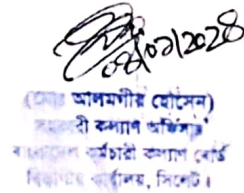 ০৪/০২/2024
(মোঃ আলমগীর হোসেন)
সহকারী কল্যাণ অফিসার
বাংলাদেশ কর্মচারী কল্যাণ বোর্ড
বিভাগীয় কার্যালয়, সিলেট।